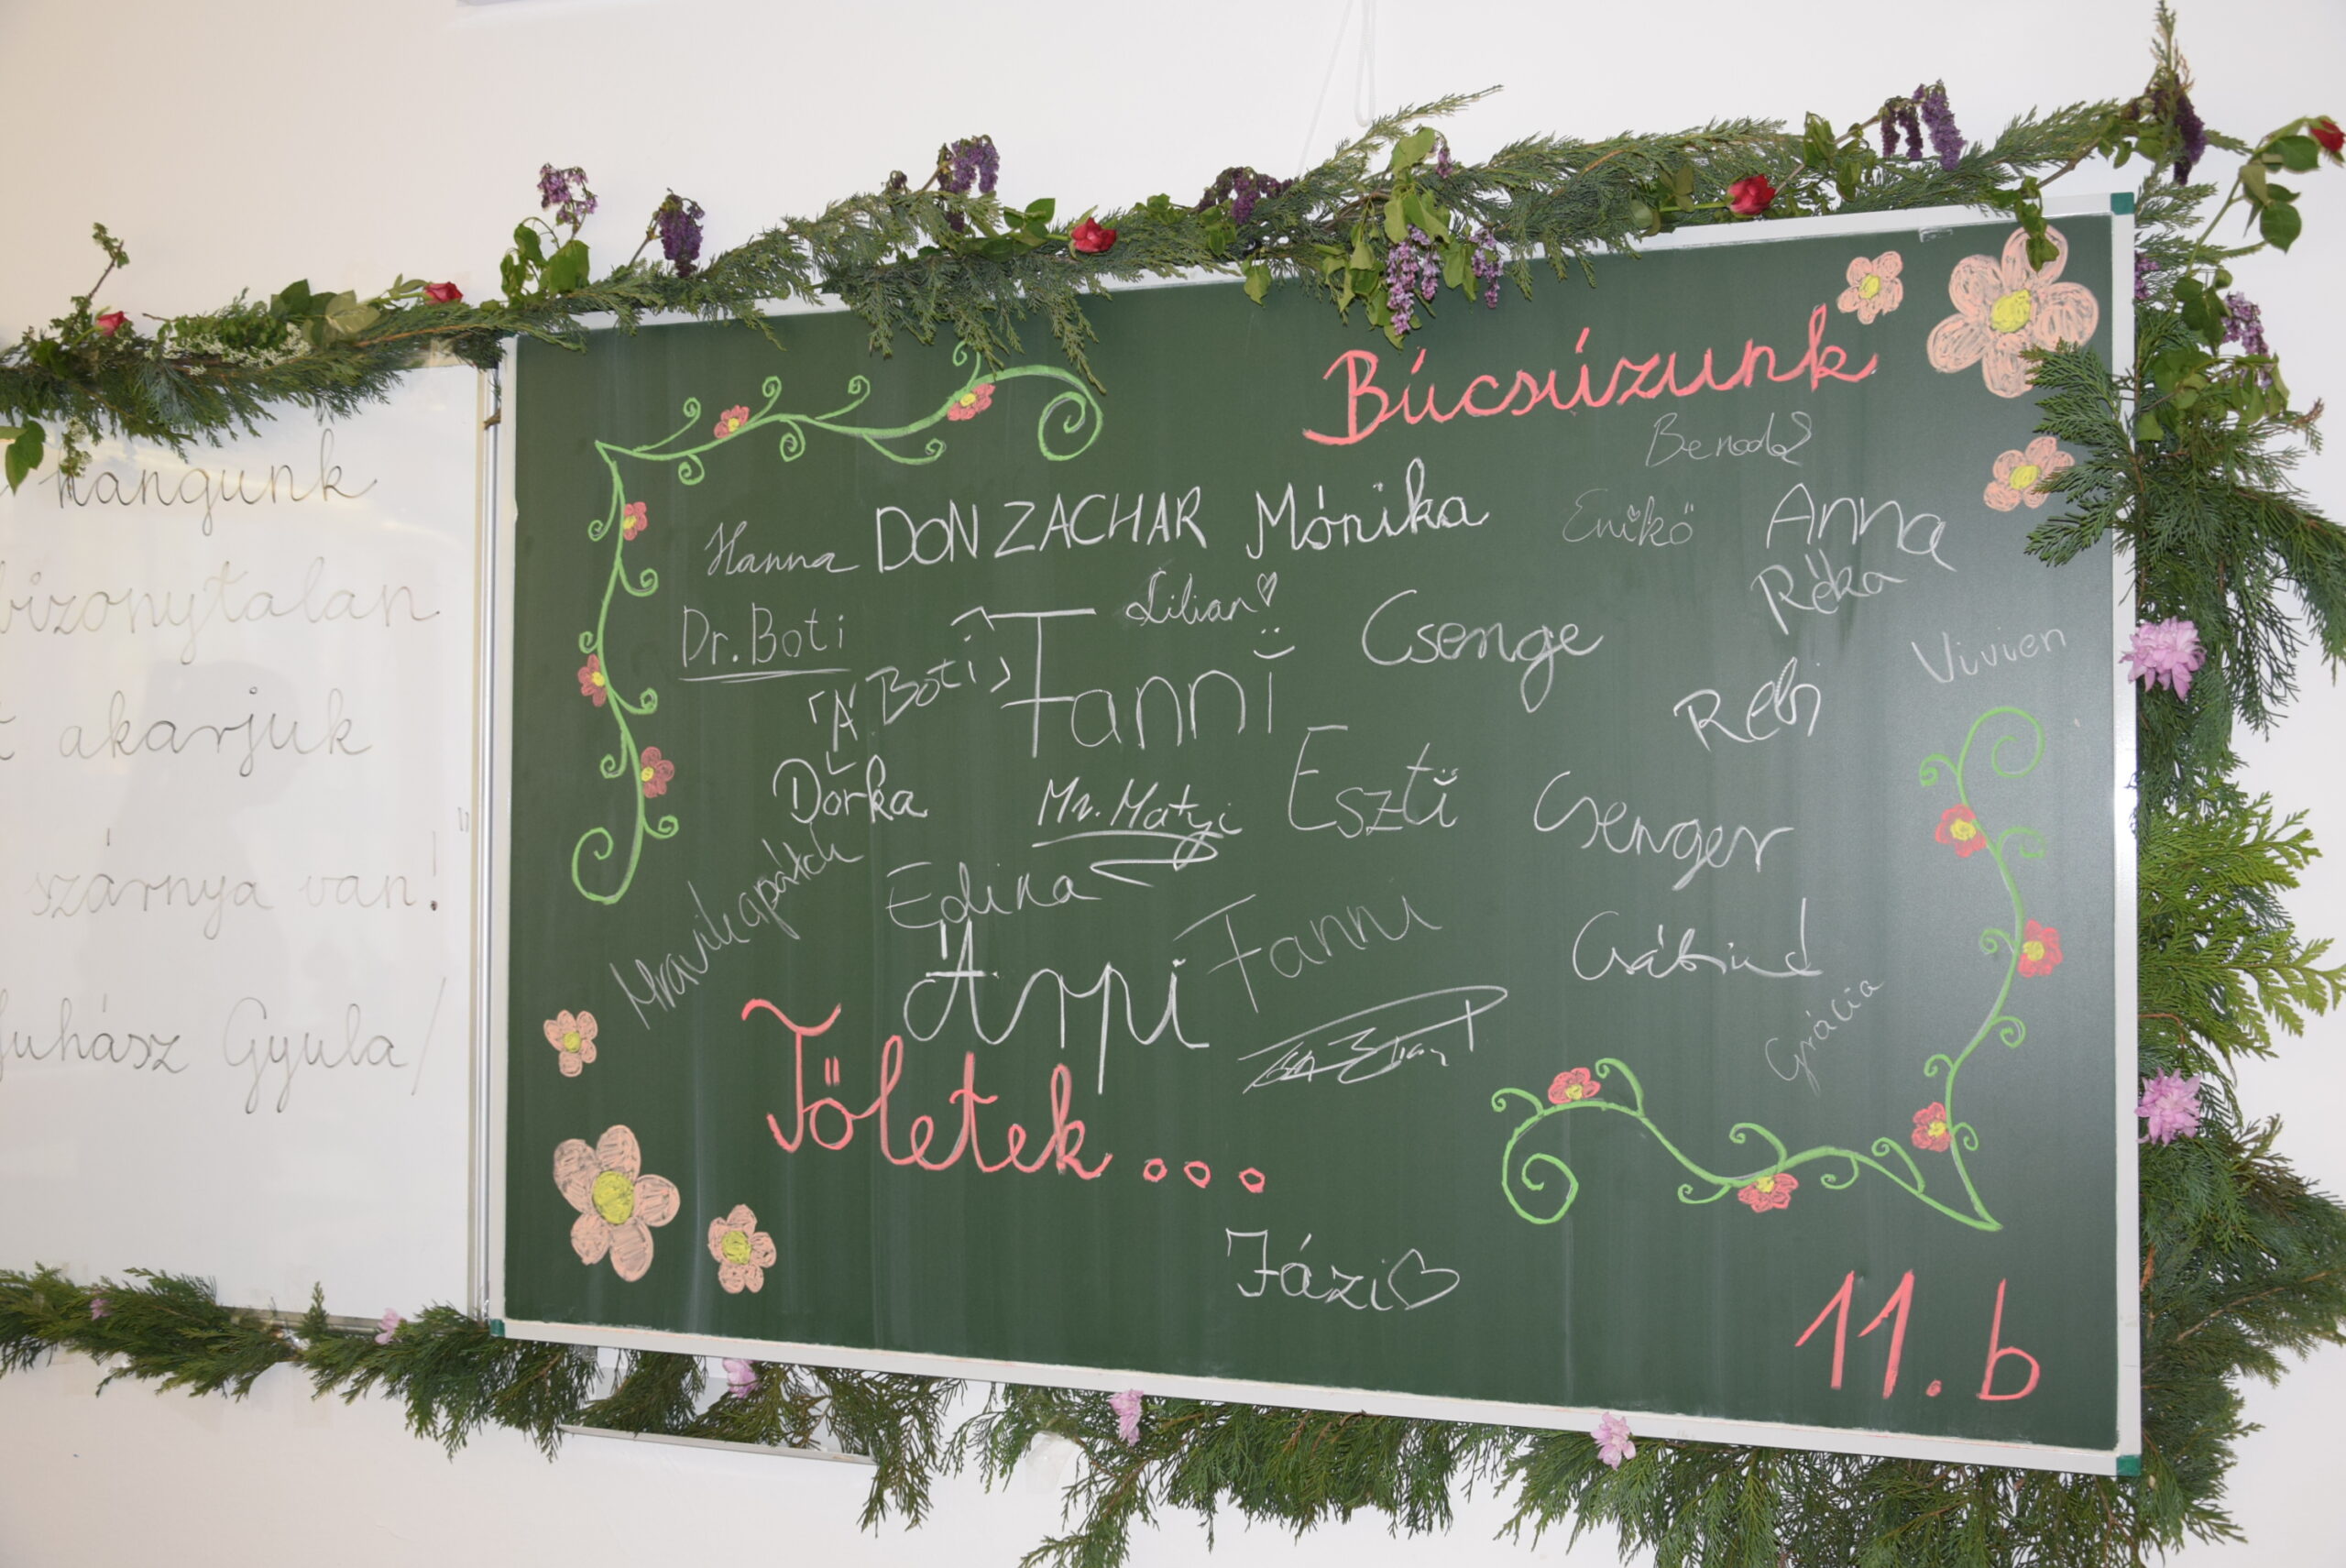 hangunk
bizonytalan
akarjuk
szárnya van! "
Juhász Gyula/
Búcsúzunk
Hanna DON ZACHAR Mónika Enikő Anna
Réka
Dr. Boti Lilian Csenge Vivien
"A Boti" Fanni Rebi
Dorka Mr. Matyi Eszti Csenger
Edina Fanni
Árpi Grácia
Tőletek...
Jázi
11.b